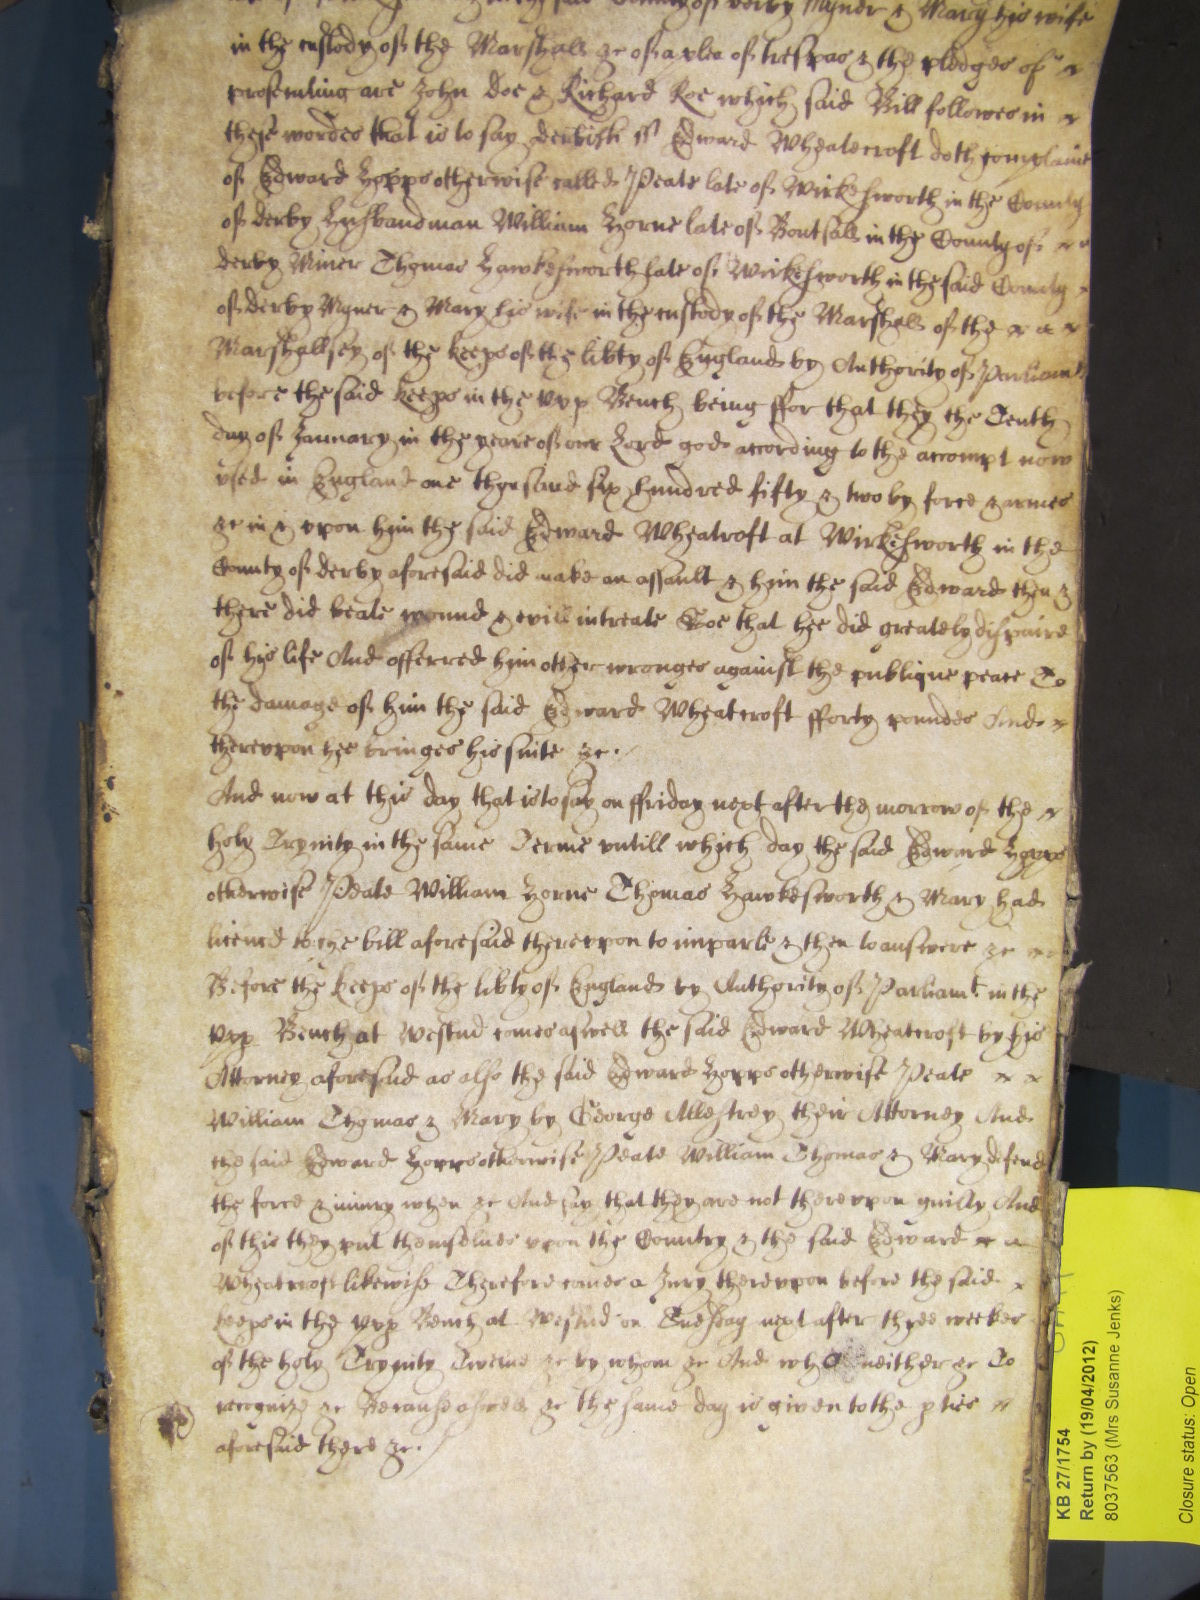 said County of derby Myner & Mary his wife
in the custody of the Marshall &c of a plea of trespas & the pledges of
prosecuting are John Doe & Richard Roe which said Bill followes in
these wordes that is to say derbish ss Edward Wheatecroft doth complaine
of Edward Hopps otherwise called Peate late of Wirkesworth in the County
of derby Husbandman William Horne late of Bontsall in the County of
derby Miner Thomas Hawkesworth late of Wirkesworth in the said County
of derby Myner & Mary his wife in the custody of the Marshall of the
Marshallsey of the keeps of the libty of England by Authority of Parliamt
before the said keeps in the Upp Bench being ffor that they the Tenth
day of January in the yeare of our Lord god according to the accompt now
used in England one thousand six hundred fifty & two by force & armes
&c in & upon him the said Edward Wheatcroft at Wirkesworth in the
County of derby aforesaid did make an assault & him the said Edward then &
there did beate wound & evill intreate Soe that hee did greately dispaire
of his life And offerred him other wronges against the publique peace To
the damage of him the said Edward Wheatcroft fforty poundes And
thereupon hee bringes his suite &c.
And now at this day that is to say on ffriday next after the morrow of the
holy Trynity in the same Terme untill which day the said Edward Hopps
otherwise Peate William Horne Thomas Hawkesworth & Mary had
licence to the bill aforesaid thereupon to imparle & then to answere &c
Before the keeps of the libty of England by Authority of Parliamt in the
Upp Bench at Westm comes aswell the said Edward Wheatcroft by his
Attorney aforesaid as also the said Edward Hopps otherwise Peate
William Thomas & Mary by George Allestrey their Attorney And
the said Edward Hopps otherwise Peate William Thomas & Mary defend
the force & iniury when &c And say that they are not thereupon guilty And
of this they put themselves upon the Country & the said Edward
Wheatcroft likewise Therefore comes a Jury thereupon before the said
keeps in the Upp Bench at Westm on Tuesday next after three weekes
of the holy Trynity Twelve &c by whom &c And who neither &c To
recognize &c Because aswell &c the same day is given to the pties
aforesaid there &c.
KB 27/1754
Return by (19/04/2012)
8037563 (Mrs Susanne Jenks)
Closure status: Open